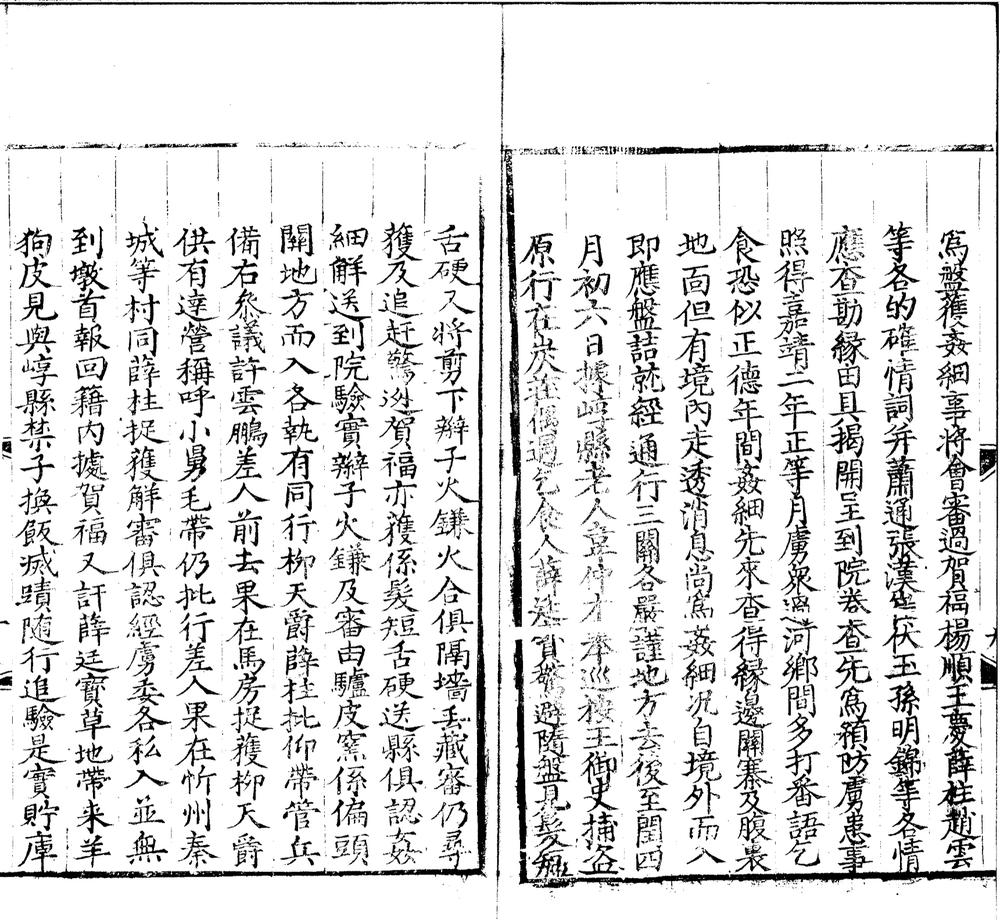 爲盤獲姦細事將會審過賀福楊順王慶薛柱趙雲
等各的確情詞并蕭通張漢生伏王孫明錦等各情
應查勘緣由具揭開呈到院卷查先爲預防虜患事
照得嘉靖二年正等月虜衆過河鄉間多打番語乞
食恐似正德年間姦細先來查得緣邊關寨及腹裏
地面但有境內走透消息尚爲姦細況自境外而入
即應盤詰就經通行三關各嚴謹地方去後至閏四
月初六日據崞縣老人韋仲才奉巡按王御史捕盜
原行在炭莊偶遇乞食人薛廷寳驚避隨盤見髮短
舌硬又將剪下辮子火鐮火合俱隔墻丟藏審仍尋
獲及追赶驚迯賀福亦獲係髮短舌硬送縣俱認姦
細解送到院驗實辮子火鐮及審由驢皮窯係偏頭
關地方而入各執有同行柳天爵薛柱批仰帶管兵
備右叅議許雲鵬差人前去果在馬房捉獲柳天爵
供有達營稱呼小舅毛帶仍批行差人果在忻州秦
城等村同薛柱捉獲解審俱認經虜委各私入並無
到墩首報回籍內據賀福又訐薛廷寳草地帶来羊
狗皮見與崞縣禁子換飯滅蹟随行追驗是實貯庫